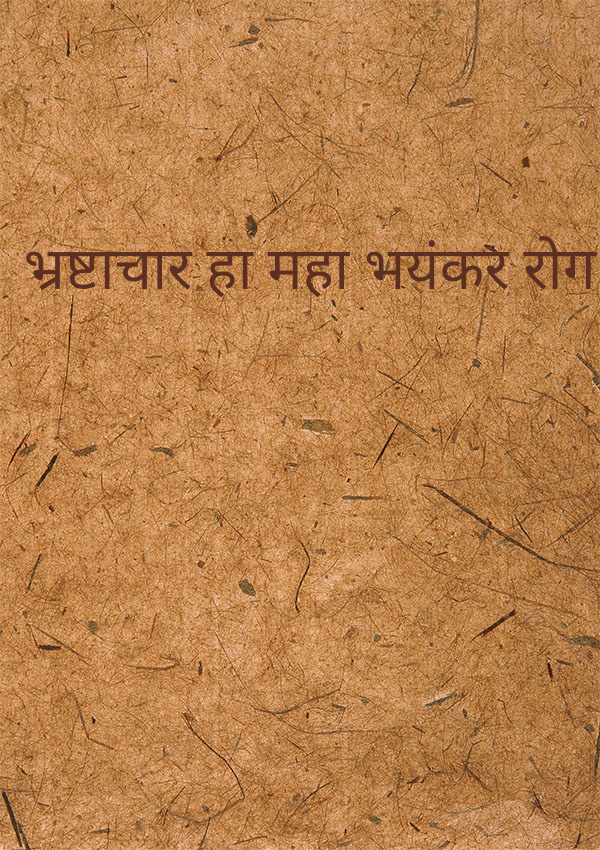 भ्रष्टाचार हा महा भयंकर रोग